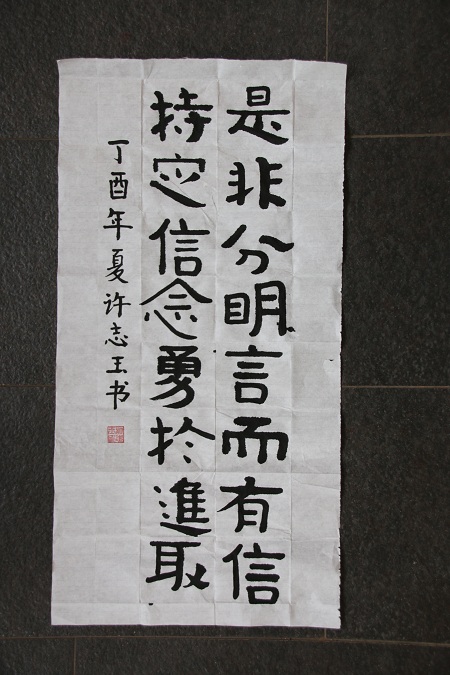 是非分明言而有信
持定信念勇於進取
丁酉年夏许志王书